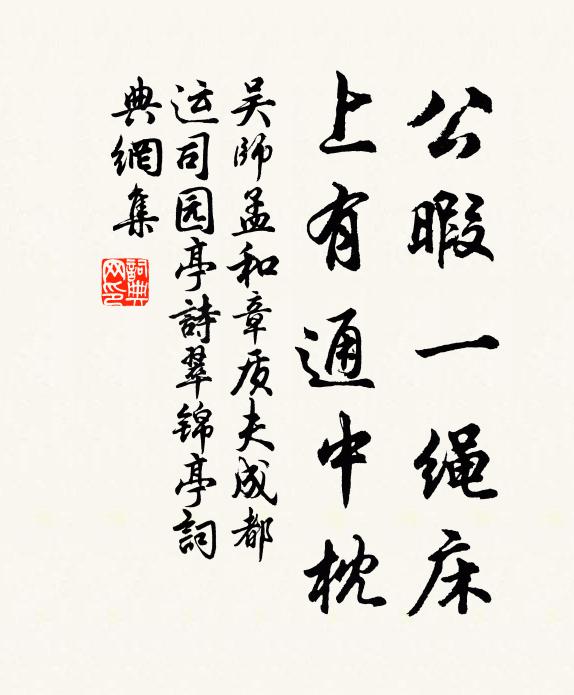 公暇一绳床
上有通中枕
吴師孟和章质夫成都
运司园亭詩翠锦亭詞
典網集
詞典网印